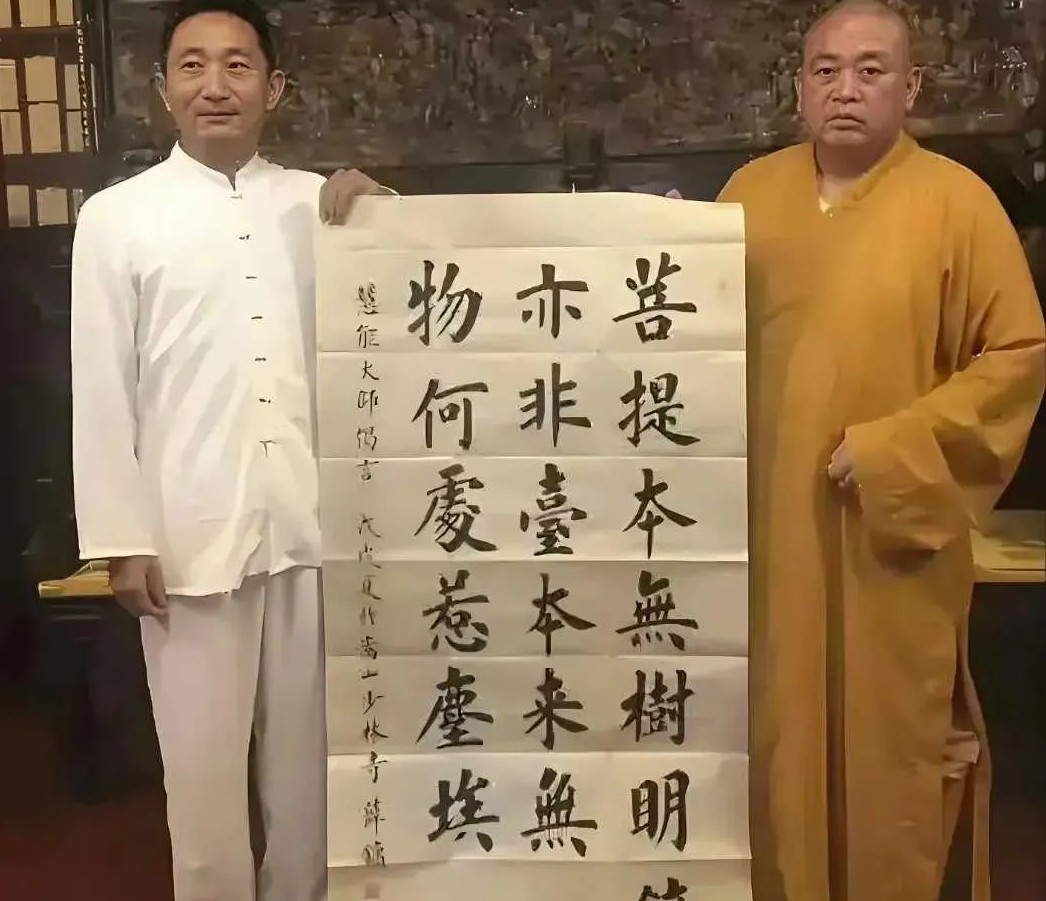 菩提本無樹明
亦非臺本来無
物何處惹塵埃
慧能大师偈言 戊戌夏於嵩山少林寺 薛